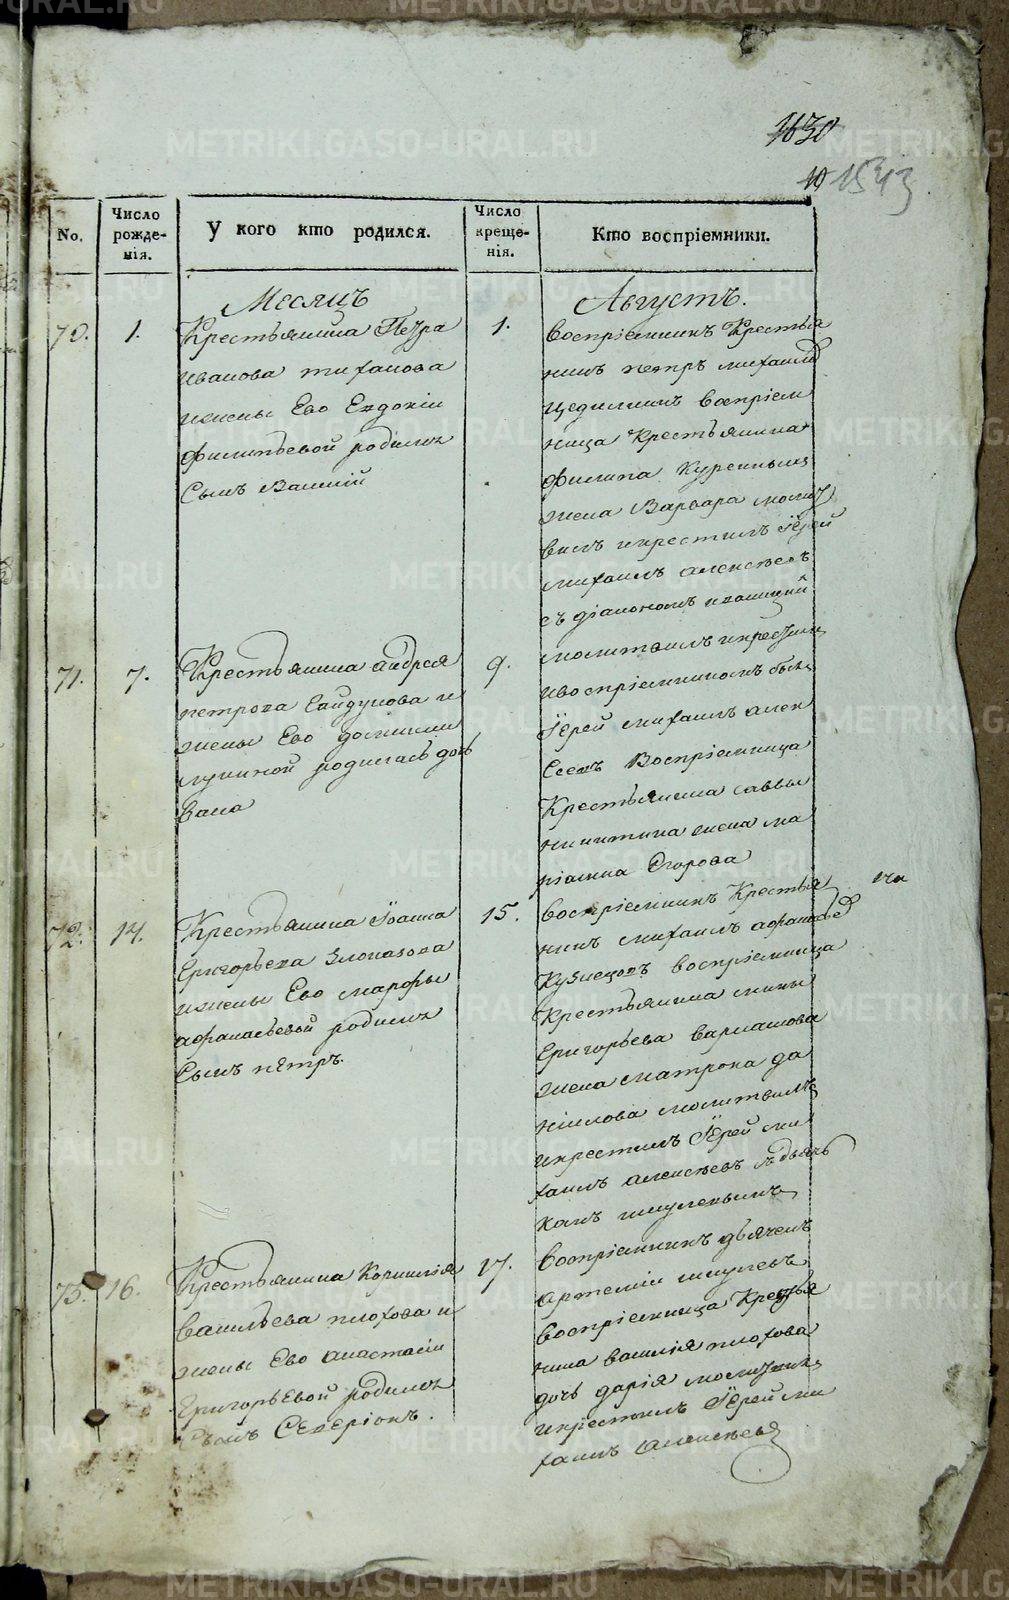 1630
10 1543
No.
Число рожденія.
У кого кто родился.
Число крещенія.
Кто воспріемники.
Месяцъ
Августъ.
70. 1.
Крестьянина Петра
иванова тихонова
ижены Ево Евдокіи
филипьевой родился
Сынъ Василій
1.
Воспріемникъ Крестья
нинъ петръ михаило
воспріем
ница Крестьянина
филипа
жена Варвара молит
вилъ икрестилъ Іерей
михаилъ алексѣевъ
съ діакономъ
71. 7.
Крестьянина андрея
петрова Гайдукова и
жены Ево
родилась дочь
9.
молитвилъ икрестилъ
ивоспріемникомъ былъ
Іерей михаилъ алек
сеевъ Воспріемница
Крестьянина саввы
никитина жена ма
ріамна Егорова
72. 14.
Крестьянина Іоанна
Григорьева Злоказова
ижены Ево марфы
афанасьевой родился
Сынъ пётръ.
15.
Воспріемникъ Крестья
нинъ михаилъ афанасьев
Кузнецовъ воспріемница
Крестьянина мины
Григорьева варлашова
жена матрона да
ніилова молитвилъ
икрестилъ Іерей ми
хаилъ алексѣевъ
75. 16.
Крестьянина Корнилія
Васильева плохова и
жены Ево анастасіи
Григорьевой родился
Сынъ Северіонъ.
17.
Воспріемникъ дьячекъ
артемій
воспріемница Крестья
нина василія плохова
дочь дарія молитвилъ
икрестилъ Іерей ми
хаилъ алексѣевъ
METRIKI.GASO-URAL.RU